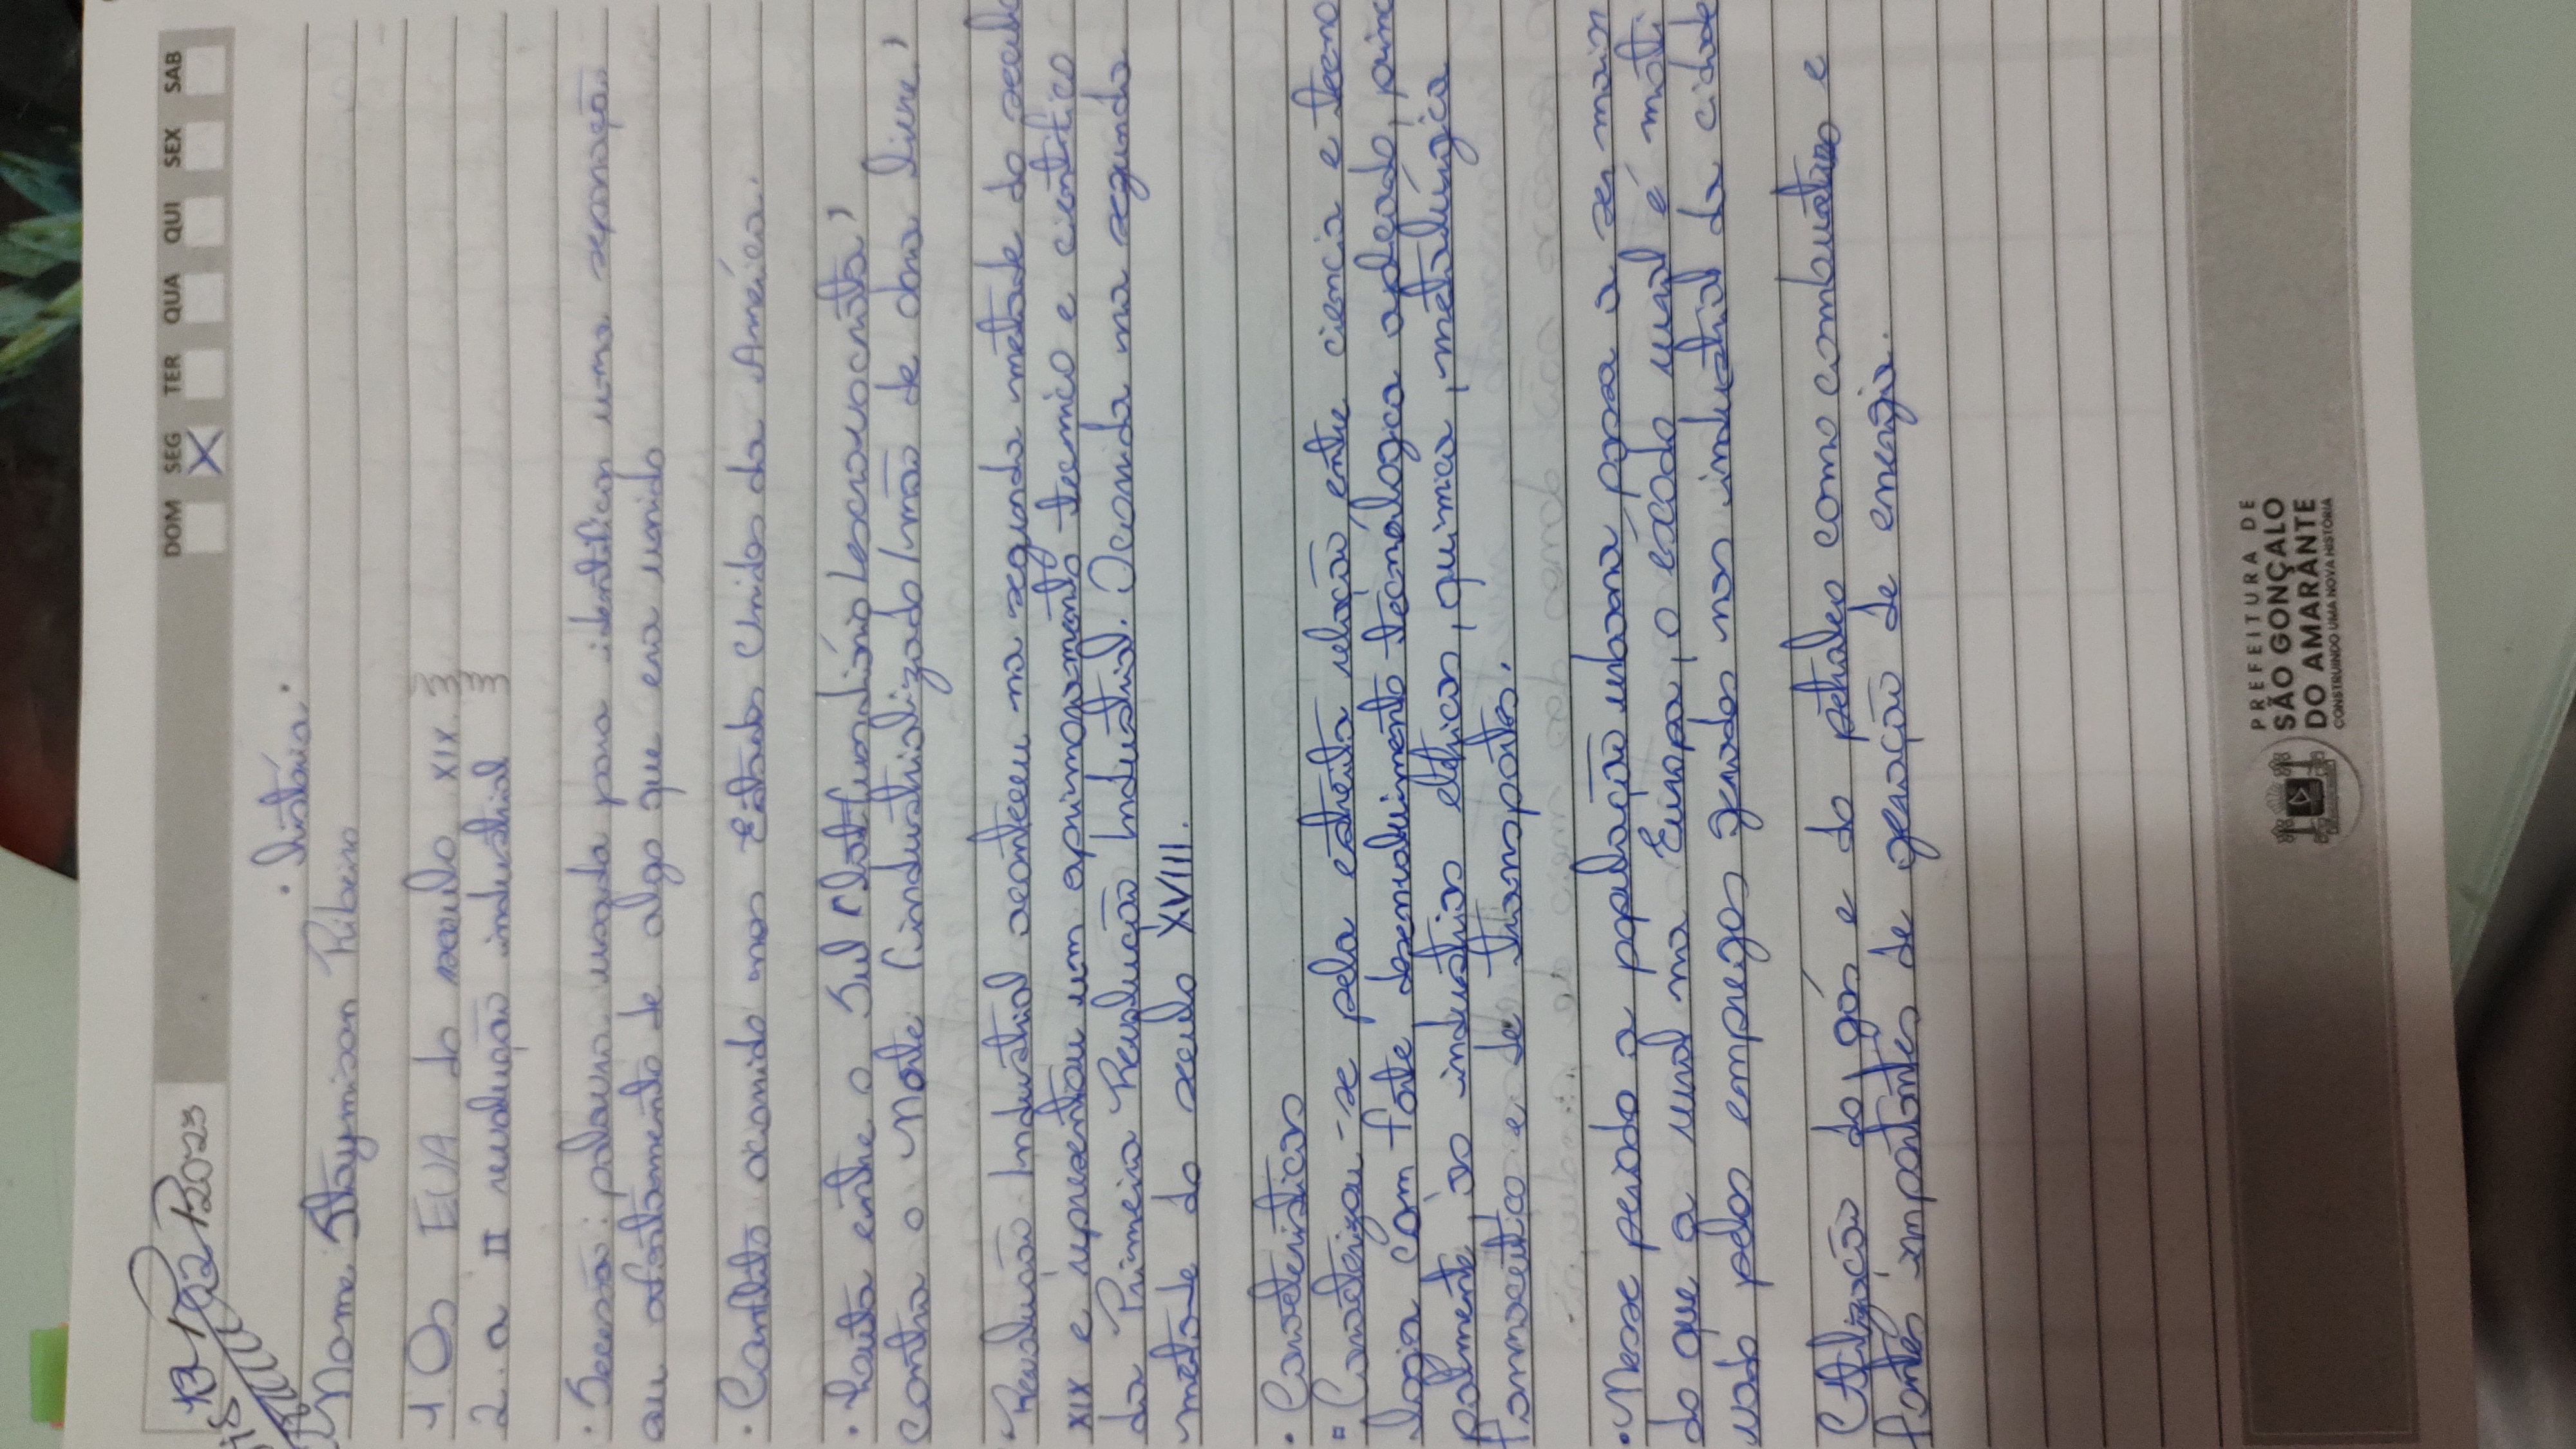 13/02/2023
DOM SEG TER QUA QUI SEX SAB
X
• história •
Nome Staymison Ribeiro
1. Os EUA do seculo XIX
2. a II revolução industrial
• Secesão: palavra usada para identificar uma separação
ou afastamento de algo que era unido
• Conflito ocorrido nos Estados Unidos da América.
• Luta entre o Sul (latfundiário/escravocrata)
contra o Norte (industrializado/mão de obra livre)
• Revolução Industrial aconteceu na segunda metade do seculo
XIX e representou um aprimoramento tecnico e cientifico
da Primeira Revolução Industrial. Ocorrida na segunda
metade do seculo XVIII.
• Caracteristicas
Caracterizou-se pela estreita relação entre ciencia e tecno
logia com forte desenvolvimento tecnológica aplcado, princ
palmente, as industrias elétricas, química, metalúrgica
farmaceutico e de transportes.
• Nesse periodo a população urbana passa a ser maior
do que a rural na Europa, o êxodo rural é moti
vado pelos empregos gerados nas industrial da cidade
Utilização do gás e do petroleo como e
fontes importantes de geração de energia.
PREFEITURA DE
SÃO GONÇALO
DO AMARANTE
CONSTRUINDO UMA NOVA HISTÓRIA